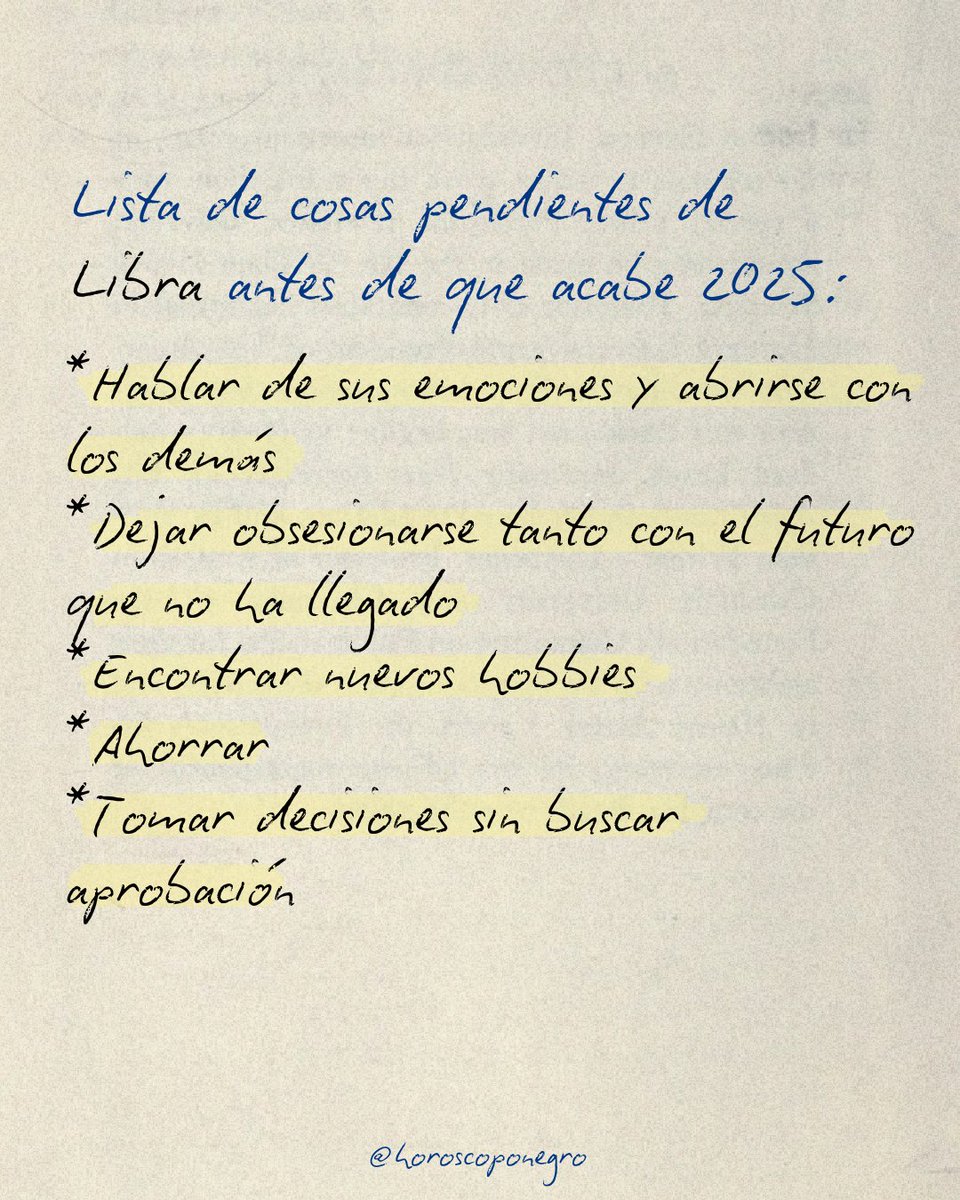 Lista de cosas pendientes de
Libra antes de que acabe 2025:
*Hablar de sus emociones y abrirse con
los demás
*Dejar obsesionarse tanto con el futuro
que no ha llegado
*Encontrar nuevos hobbies
*Ahorrar
*Tomar decisiones sin buscar
aprobación
@horoscoponegro